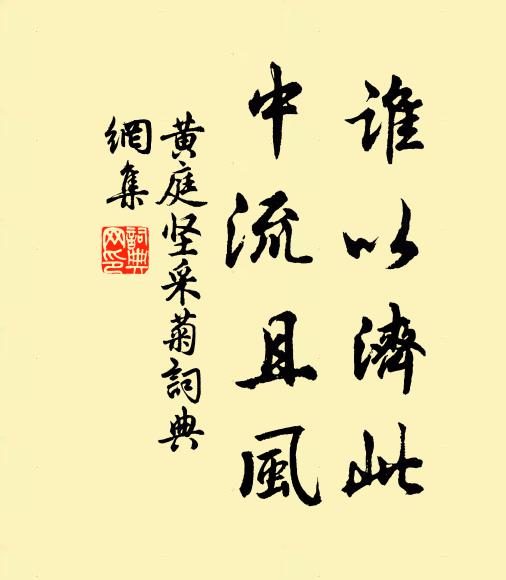 誰以濟此
中流且風
黄庭坚采菊詞典
網集
詞典网印